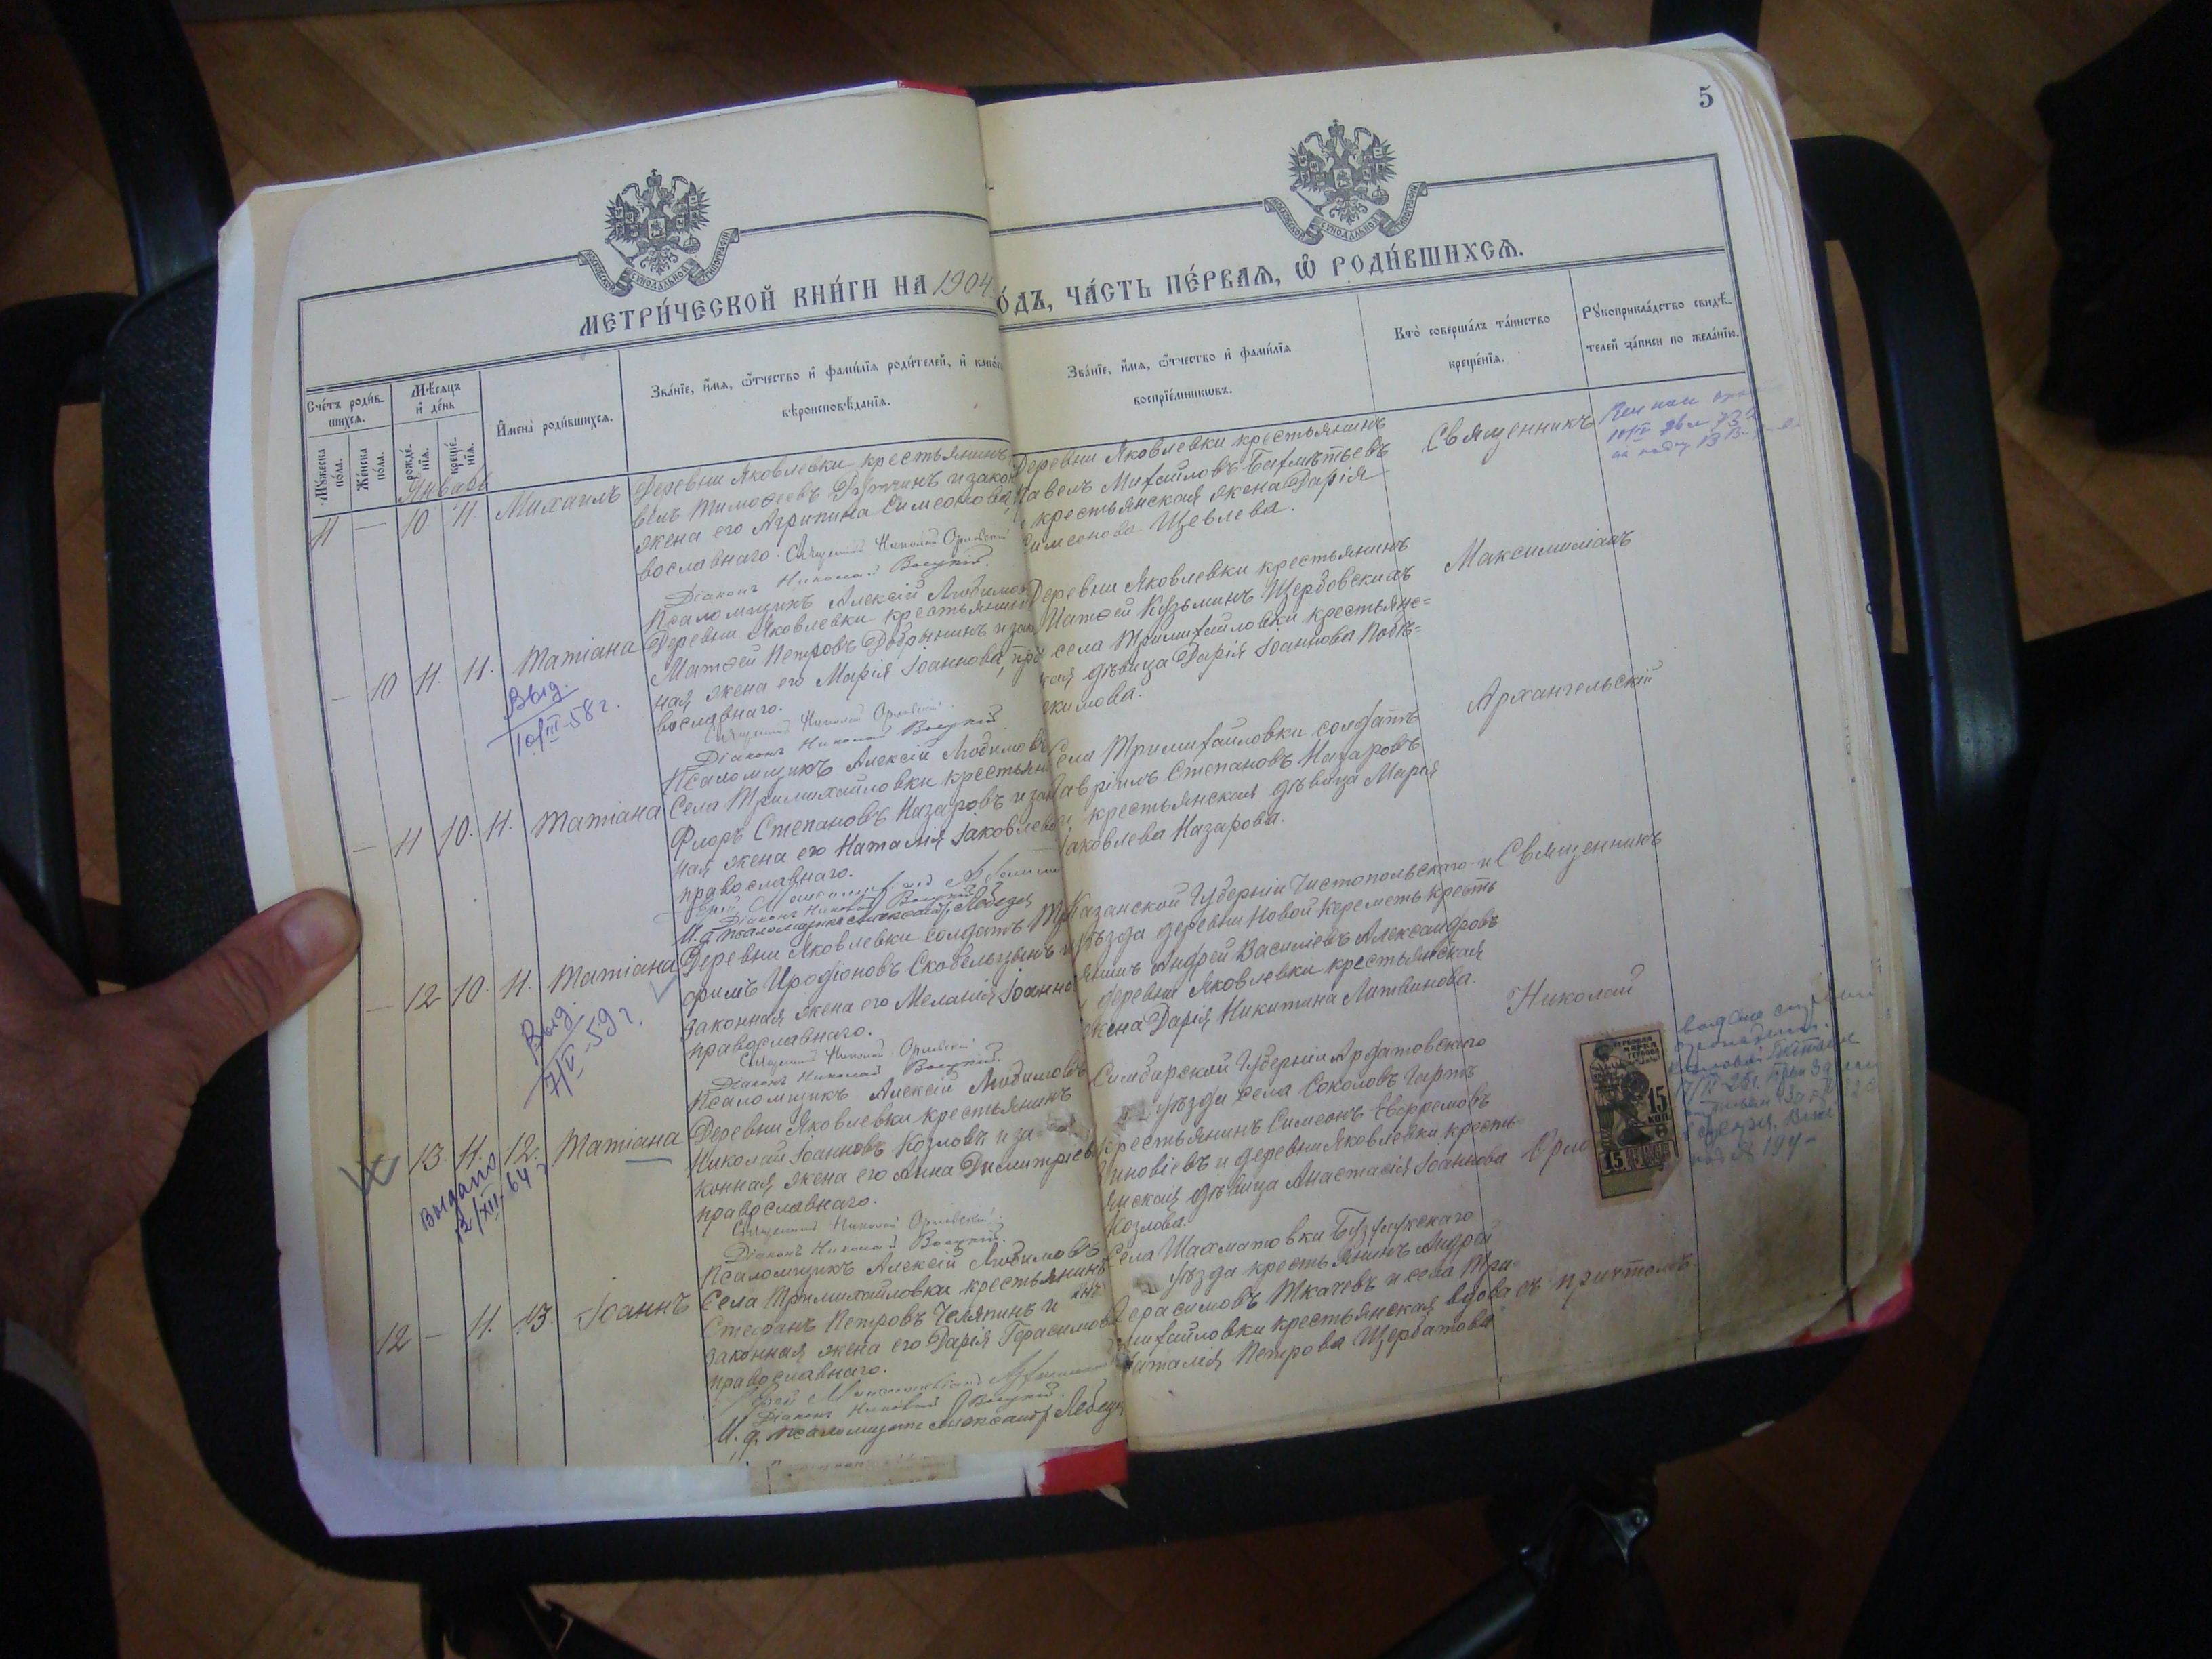 5
МОСКОВСКОЙ СУНОДАЛЬНОЙ ТУПОГРАФІИ
МОСКОВСКОЙ СУНОДАЛЬНОЙ ТУПОГРАФІИ
МЕТРИ́ЧЕСКОЙ КНИ́ГИ НА 1904
О́ДЪ, ЧА́СТЬ ПЕ́РВАѦ, Ѿ РОДИ́ВШИХСѦ.
Счетъ роди́в-
шихсѧ.
Мꙋжеска по́ла.
Же́нска по́ла.
Мѣ́сѧцъ и҆ де́нь
рожде́-нїѧ.
креще́-нїѧ.
И҆мена̀ роди́вшихсѧ.
Зва́нїе, и҆́мѧ, ѻ҆́тчество и҆ фамил́їѧ роди́телей, и҆ како́
вѣроисповѣ́данїѧ.
Зва́нїе, и҆́мѧ, ѻ҆́тчество и҆ фами́лїѧ
воспрїе́мникѡвъ.
Кто̀ соверша́лъ та́инство
креще́нїѧ.
Рꙋкоприкла́дство свидѣ́-
телей за́писи по жела́нїю.
Январь
11 — 10 11. Михаилъ
Деревни Яковлевки крестьянинъ
велъ Тимофеевъ и закон
жена его Агрипина Симеонова
вославнаго. Священникъ Николай Орловскій
Діаконъ Николай
Псаломщикъ Алексій Любимовъ
Деревни Яковлевки крестьянинъ
Павелъ Михайловъ Бахмѣтьевъ
и крестьянская жена Дарія
Симеонова Щевлева.
Священникъ
— 10 11. 11. Татіана
Выд.
10/III-58 г.
Деревни Яковлевки крестьянинъ
Матфей Петровъ Добрынинъ и зако
ная жена его Марія Іоаннова, пра
вославнаго.
Священникъ Николай Орловскій
Діаконъ Николай
Псаломщикъ Алексій Любимовъ
Деревни Яковлевки крестьянинъ
Матфей Кузьминъ Щербовскихъ
села Тримихайловки крестьянс=
кая дѣвица Дарія Іоаннова
Максимиліанъ
— 11 10. 11. Татіана
Села Тримихайловки крестьян
Флоръ Степановъ Назаровъ и зак
ная жена его Наталія Іаковлев
православнаго.
Діаконъ Николай
И. д. псаломщика Александръ Лебедев
Села Тримихайловки солдатъ
Гавріилъ Степановъ Назаровъ
и крестьянская дѣвица Марія
Іаковлева Назарова.
Архангельскій
— 12 10. 11. Татіана
Выд.
7/V-59 г.
Деревни Яковлевки солдатъ
фимъ Иродіоновъ Скобельцынъ и
законная жена его Меланія Іоанно
православнаго.
Священникъ Николай Орловскій
Діаконъ Николай
Псаломщикъ Алексій Любимовъ
Казанской Губерніи Чистопольскаго
уѣзда деревни Новой Кереметь кресть
янинъ Андрей Василіевъ Александровъ
и деревни Яковлевки крестьянская
жена Дарія Никитина Литвинова.
Священникъ
— 13. 11. 12. Татіана
Выдано
12/XII-64 г.
Деревни Яковлевки крестьянинъ
Николай Іоанновъ Козловъ и за-
конная жена его Анна Димитріев
православнаго.
Священникъ Николай Орловскій
Діаконъ Николай
Псаломщикъ Алексій Любимовъ
Симбирской Губерніи Ардатовскаго
уѣзда села Соколовъ Гартъ
крестьянинъ Симеонъ Евфремовъ
Зиновіевъ и деревни Яковлевки кресть-
янская дѣвица Анастасія Іоаннова
Козлова.
Николай
Орло
15 КОП
15
12 — 11. 13. Іоаннъ
Села Тримихайловки крестьянинъ
Стефанъ Петровъ Челяпинъ и
законная жена его Дарія Герасимова
православнаго.
Діаконъ Николай
И. д. псаломщика Александръ Лебедев
Села Шахматовки Бузулукскаго
уѣзда крестьянинъ Андрей
Герасимовъ Ткачевъ и села Три-
михайловки крестьянская вдова
Наталія Петрова Щербатова
съ причтомъ.